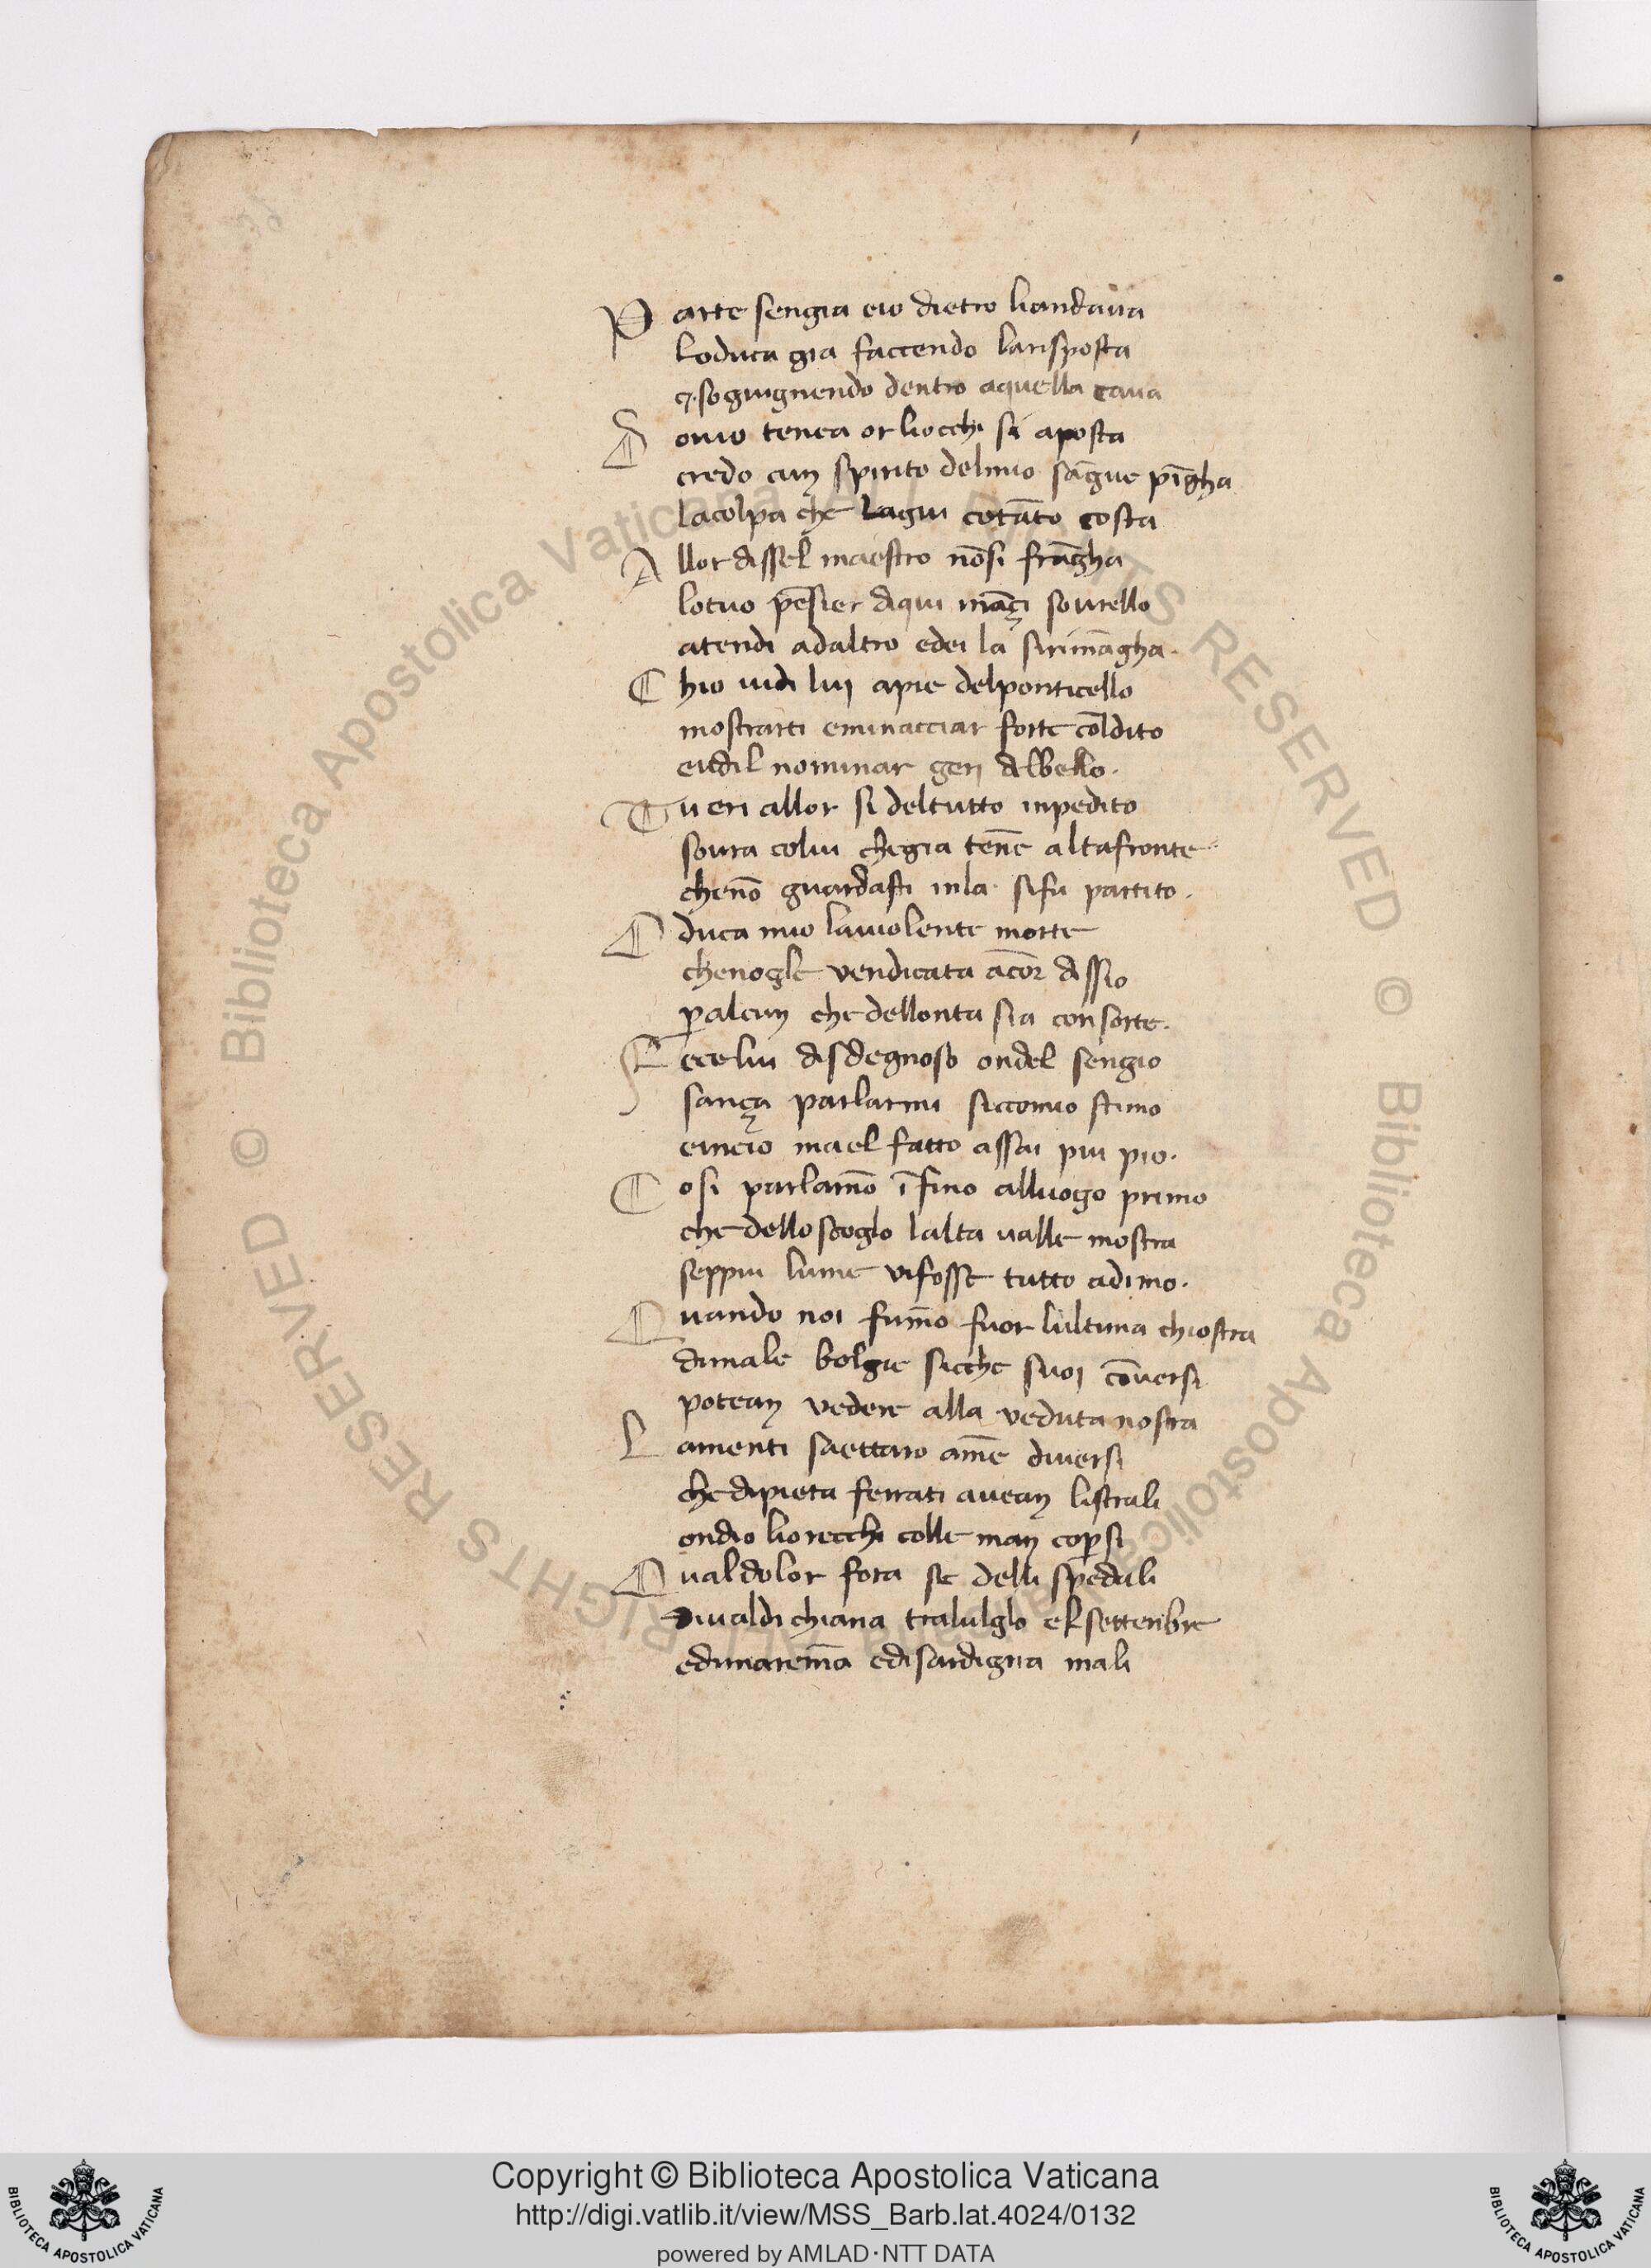 Parte sengia eio dietro liandaua
Loduca gia faccendo larisposta
⁊ sogiugnendo dentro aquella caua
Douio tenea or liocchi si aposta
credo cun spirito delmio sāgue pīgha
lacolpa che lagiu cotāto costa
Allor dissel maestro nōsi frāgha
lotuo pēsier diqui ināçi sourello
atendi adaltro edei la sirimāgha.
Chio uidi lui apie delponticello
mostrarti eminacciar forte cōldito
eudil nominar geri delbello.
Tu eri allor si deltutto inpedito
soura colui chegia tēne altaforte
chenō guardasti inla sifu partito.
O duca mio lauiolente morte
chenogle vendicata ācor dissio
peralcun che dellonta sia consorte.
Fecelui disdegnoso ondel sengio
sança parlarmi siccomio stimo
eincio mael fatto assai piu pio.
Cosi parlamō īfino alluogo primo
che delloscoglo lalta ualle mostra
seppiu lume vifosse tutto adimo.
Quando noi fumō fuor lultima chiostra
dimale bolgie sicche suoi cōuersi
potean vedere alla veduta nostra
Lamenti saettaro amē diuersi
che dipieta ferrati auean listrali
ondio liorecchi colle man copersi
Qualdolor fora se delli spedali
diualdichiana tralulglo elsettenbre
edimarēma edisardigna mali
Copyright © Biblioteca Apostolica Vaticana
http://digi.vatlib.it/view/MSS_Barb.lat.4024/0132
powered by AMLAD·NTT DATA
BIBLIOTECA APOSTOLICA VATICANA
BIBLIOTECA APOSTOLICA VATICANA